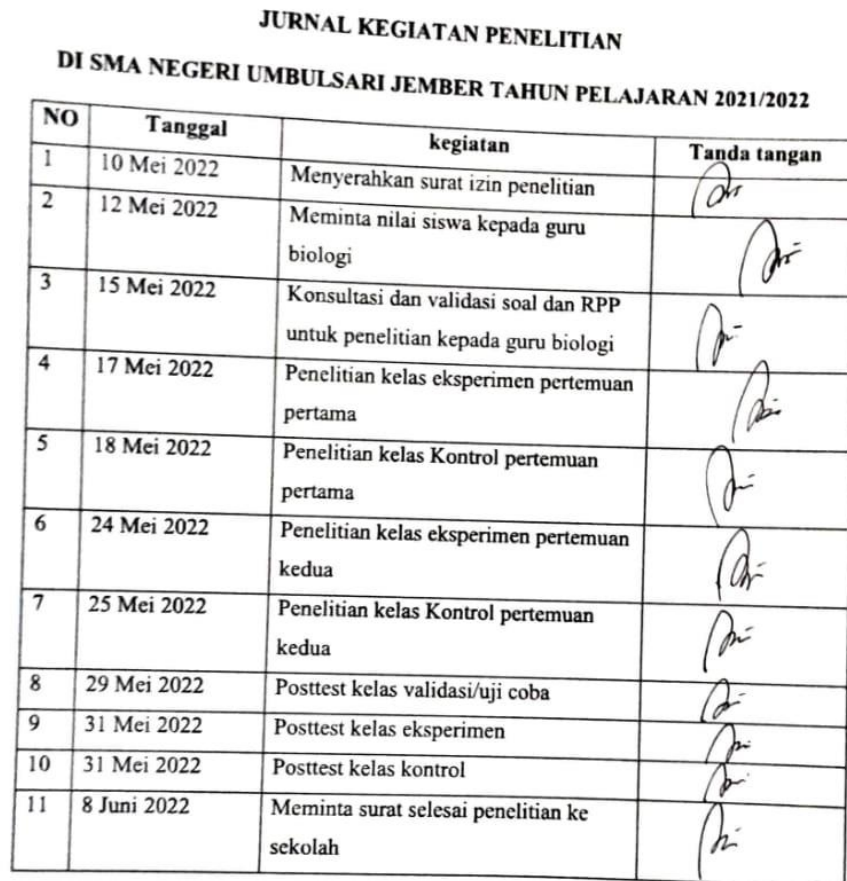 JURNAL KEGIATAN PENELITIAN
DI SMA NEGERI UMBULSARI JEMBER TAHUN PELAJARAN 2021/2022
NO Tanggal kegiatan Tanda tangan
1 10 Mei 2022 Menyerahkan surat izin penelitian
2 12 Mei 2022 Meminta nilai siswa kepada guru
biologi
3 15 Mei 2022 Konsultasi dan validasi soal dan RPP
untuk penelitian kepada guru biologi
4 17 Mei 2022 Penelitian kelas eksperimen pertemuan
pertama
5 18 Mei 2022 Penelitian kelas Kontrol pertemuan
pertama
6 24 Mei 2022 Penelitian kelas eksperimen pertemuan
kedua
7 25 Mei 2022 Penelitian kelas Kontrol pertemuan
kedua
8 29 Mei 2022 Posttest kelas validasi/uji coba
9 31 Mei 2022 Posttest kelas eksperimen
10 31 Mei 2022 Posttest kelas kontrol
11 8 Juni 2022 Meminta surat selesai penelitian ke
sekolah